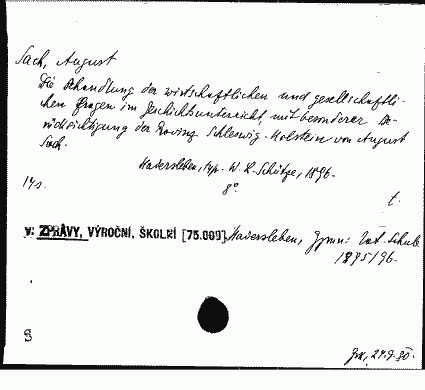 Sach, August
Die Behandlung der wirtschaftlichen und gesellschaftli-
chen Fragen im Geschichtsunterricht, mit besonderer Be-
rücksichtigung der Provinz Schleswig-Holstein von August
Sach.
Hadersleben, typ. W. L. Schütze, 1896.
14 s. 8° t.
v: ZPRÁVY, VÝROČNÍ, ŠKOLNÍ [75.009] Hadersleben, Gymn: Schulb.
1895/96.
S
24.9.80.